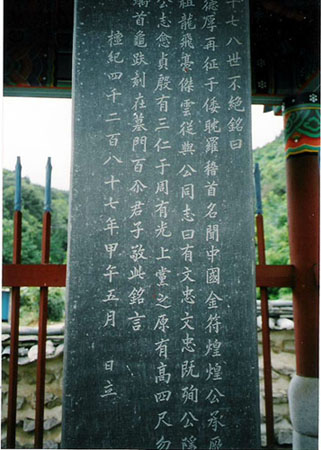 十七八世不絶銘曰
德厚再征于倭眈羅稽首名聞中國金符煌煌公承厥
祖龍飛豪傑雲從與公同志曰有文忠文忠既殉公隱
公志愈貞殷有三仁于周有光上黨之原有高四尺勿
螭首龜趺刻在墓門百尒君子敬此銘言
檀紀四千二百八十七年甲午五月 日立